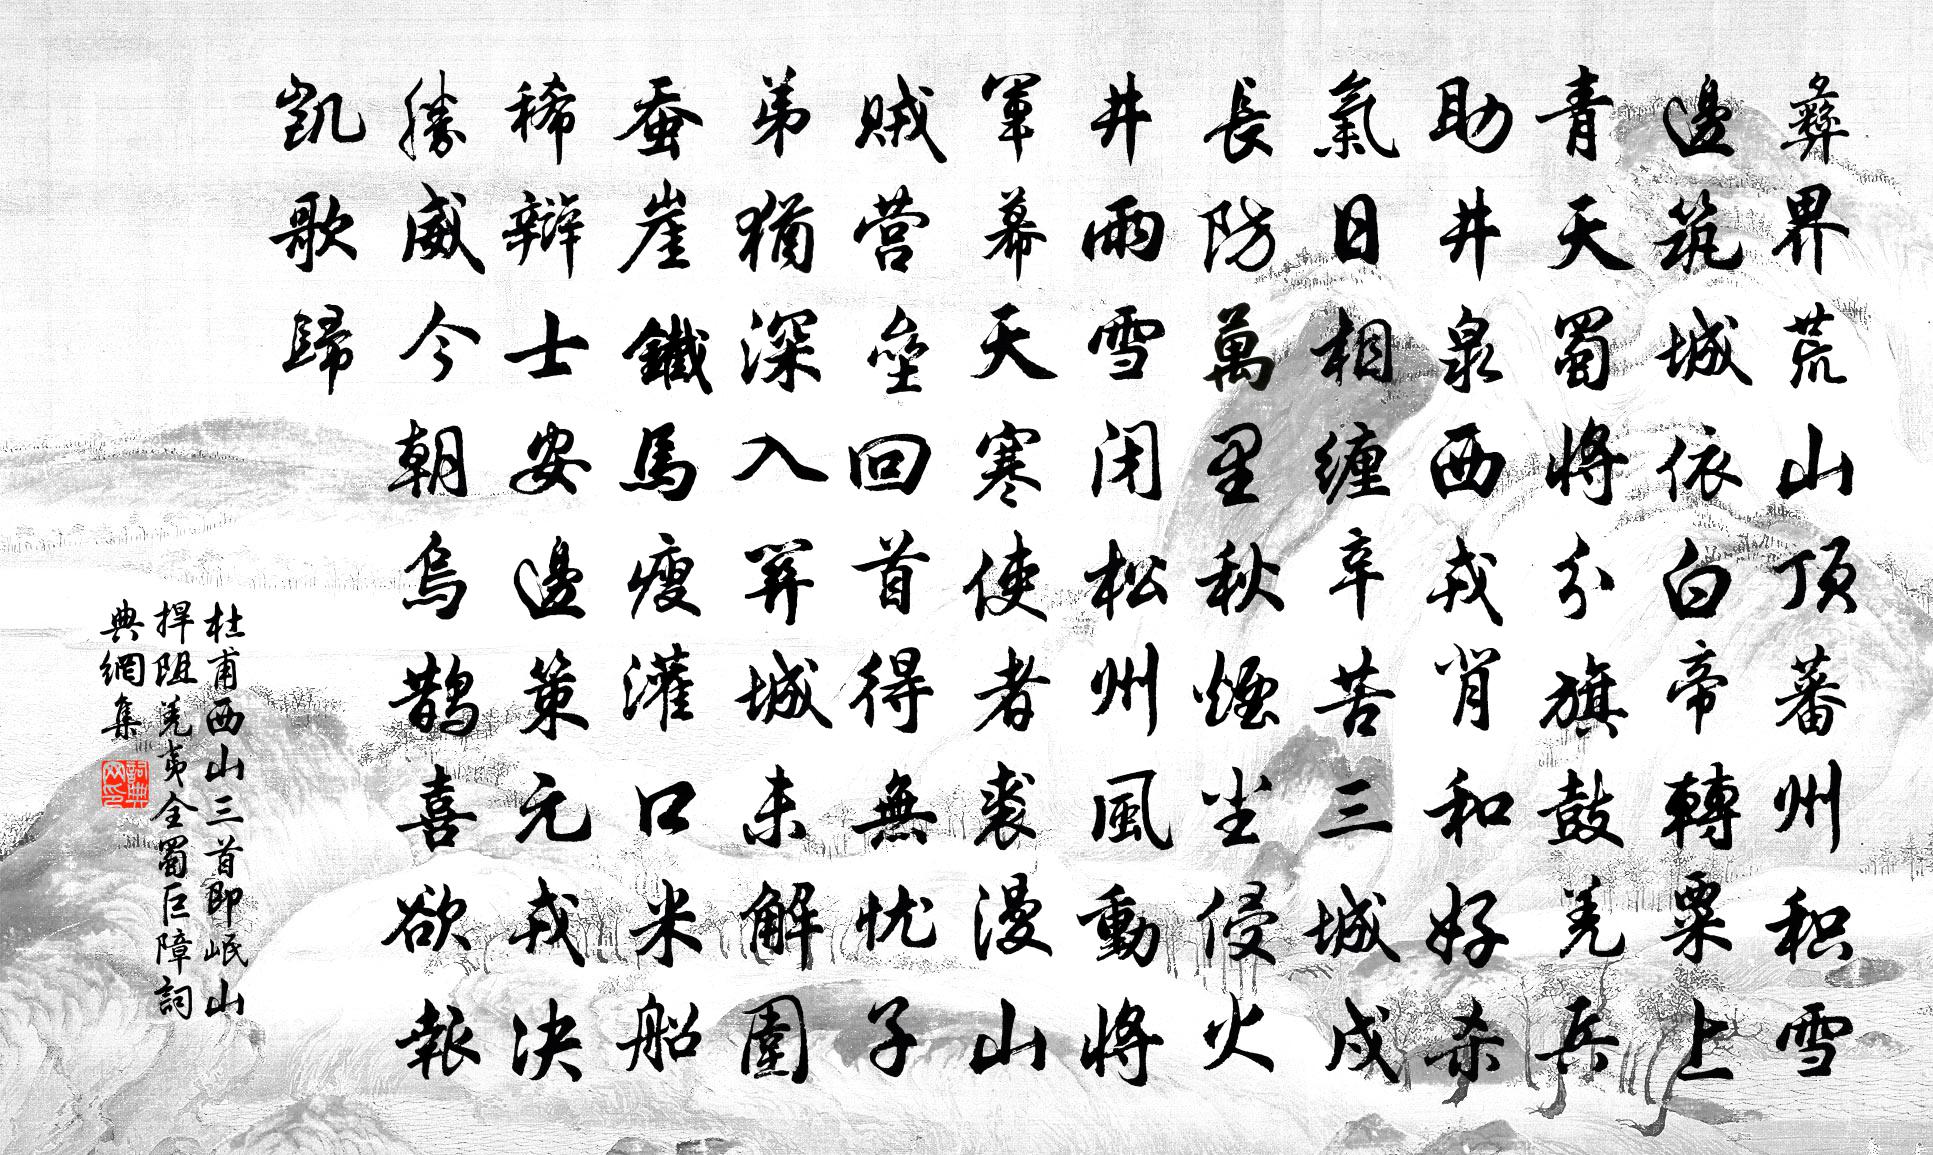 彝界荒山顶蕃州积雪
邊筑城依白帝轉粟上
青天蜀将分旗鼓羌兵
助井泉西戎背和好杀
氣日相缠辛苦三城戍
長防萬里秋煙尘侵火
井雨雪闭松州風動将
軍幕天寒使者裘漫山
贼营垒回首得無忧子
弟猶深入関城未解圍
蚕崖鐵馬瘦灌口米船
稀辩士安邊策元戎决
勝威今朝烏鹊喜欲報
凯歌歸
杜甫西山三首即岷山
捍阻羌夷全蜀巨障詞
典網集
詞典网印